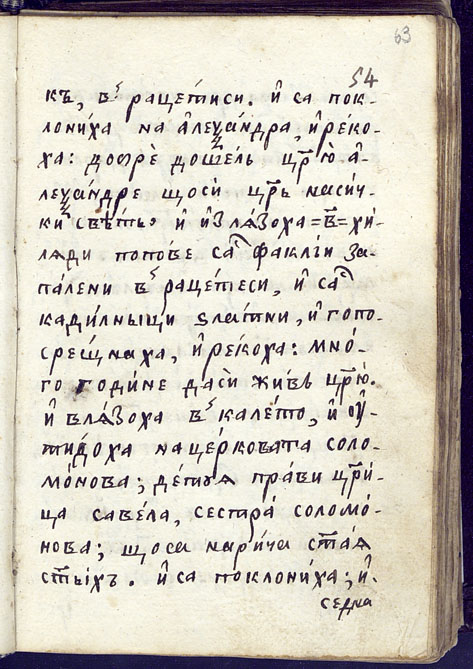 63
54
къ, в̾ раце́тиси. и҆ са пок-
лони́ха на а҆леѯа́ндра, и҆ре́ко-
ха: добрѐ доше́лъ цр҃ю а҆-
леѯа́ндре щосѝ цр҃ь наси́ч-
ки свѣ́тъ, и҆ и҆злѧ́зоха =в҃= хи́-
лѧди попо́ве са̾ фа́клїи за-
па́лени в̾ раце́теси, и҆ са̾
кади́лныци ѕла́тни, и҆ гопо-
сре́щнаха, и҆ре́коха: мно́-
го годи́не даси̇̀ жи́въ цр҃ю.
и҆ влѧ́зоха в̾ кале́то, и҆ ѹ҆-
ти́доха наце́рковата соло-
мо́нова; де́тоѧ пра́ви цр҃и́-
ца саве́ла, сестра́ соломо́-
нова; щоса нари́ча ст҃а́ѧ
ст҃ы́хъ. и҆ са поклони́ха; и҆-
седна